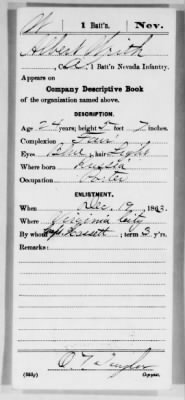 W | 1 Batt'n. | Nev.
Albert Writh
, Co. A, 1 Batt'n Nevada Infantry.
Appears on
Company Descriptive Book
of the organization named above.
DESCRIPTION.
Age 24 years; height 5 feet 7 inches.
Complexion Fair
Eyes Blue, hair Light
Where born Russia
Occupation
ENLISTMENT.
When Dec. 19, 1863.
Where Virginia City
By whom Hassett; term 3 y'rs.
Remarks:
Taylor
(383g) Copyist.